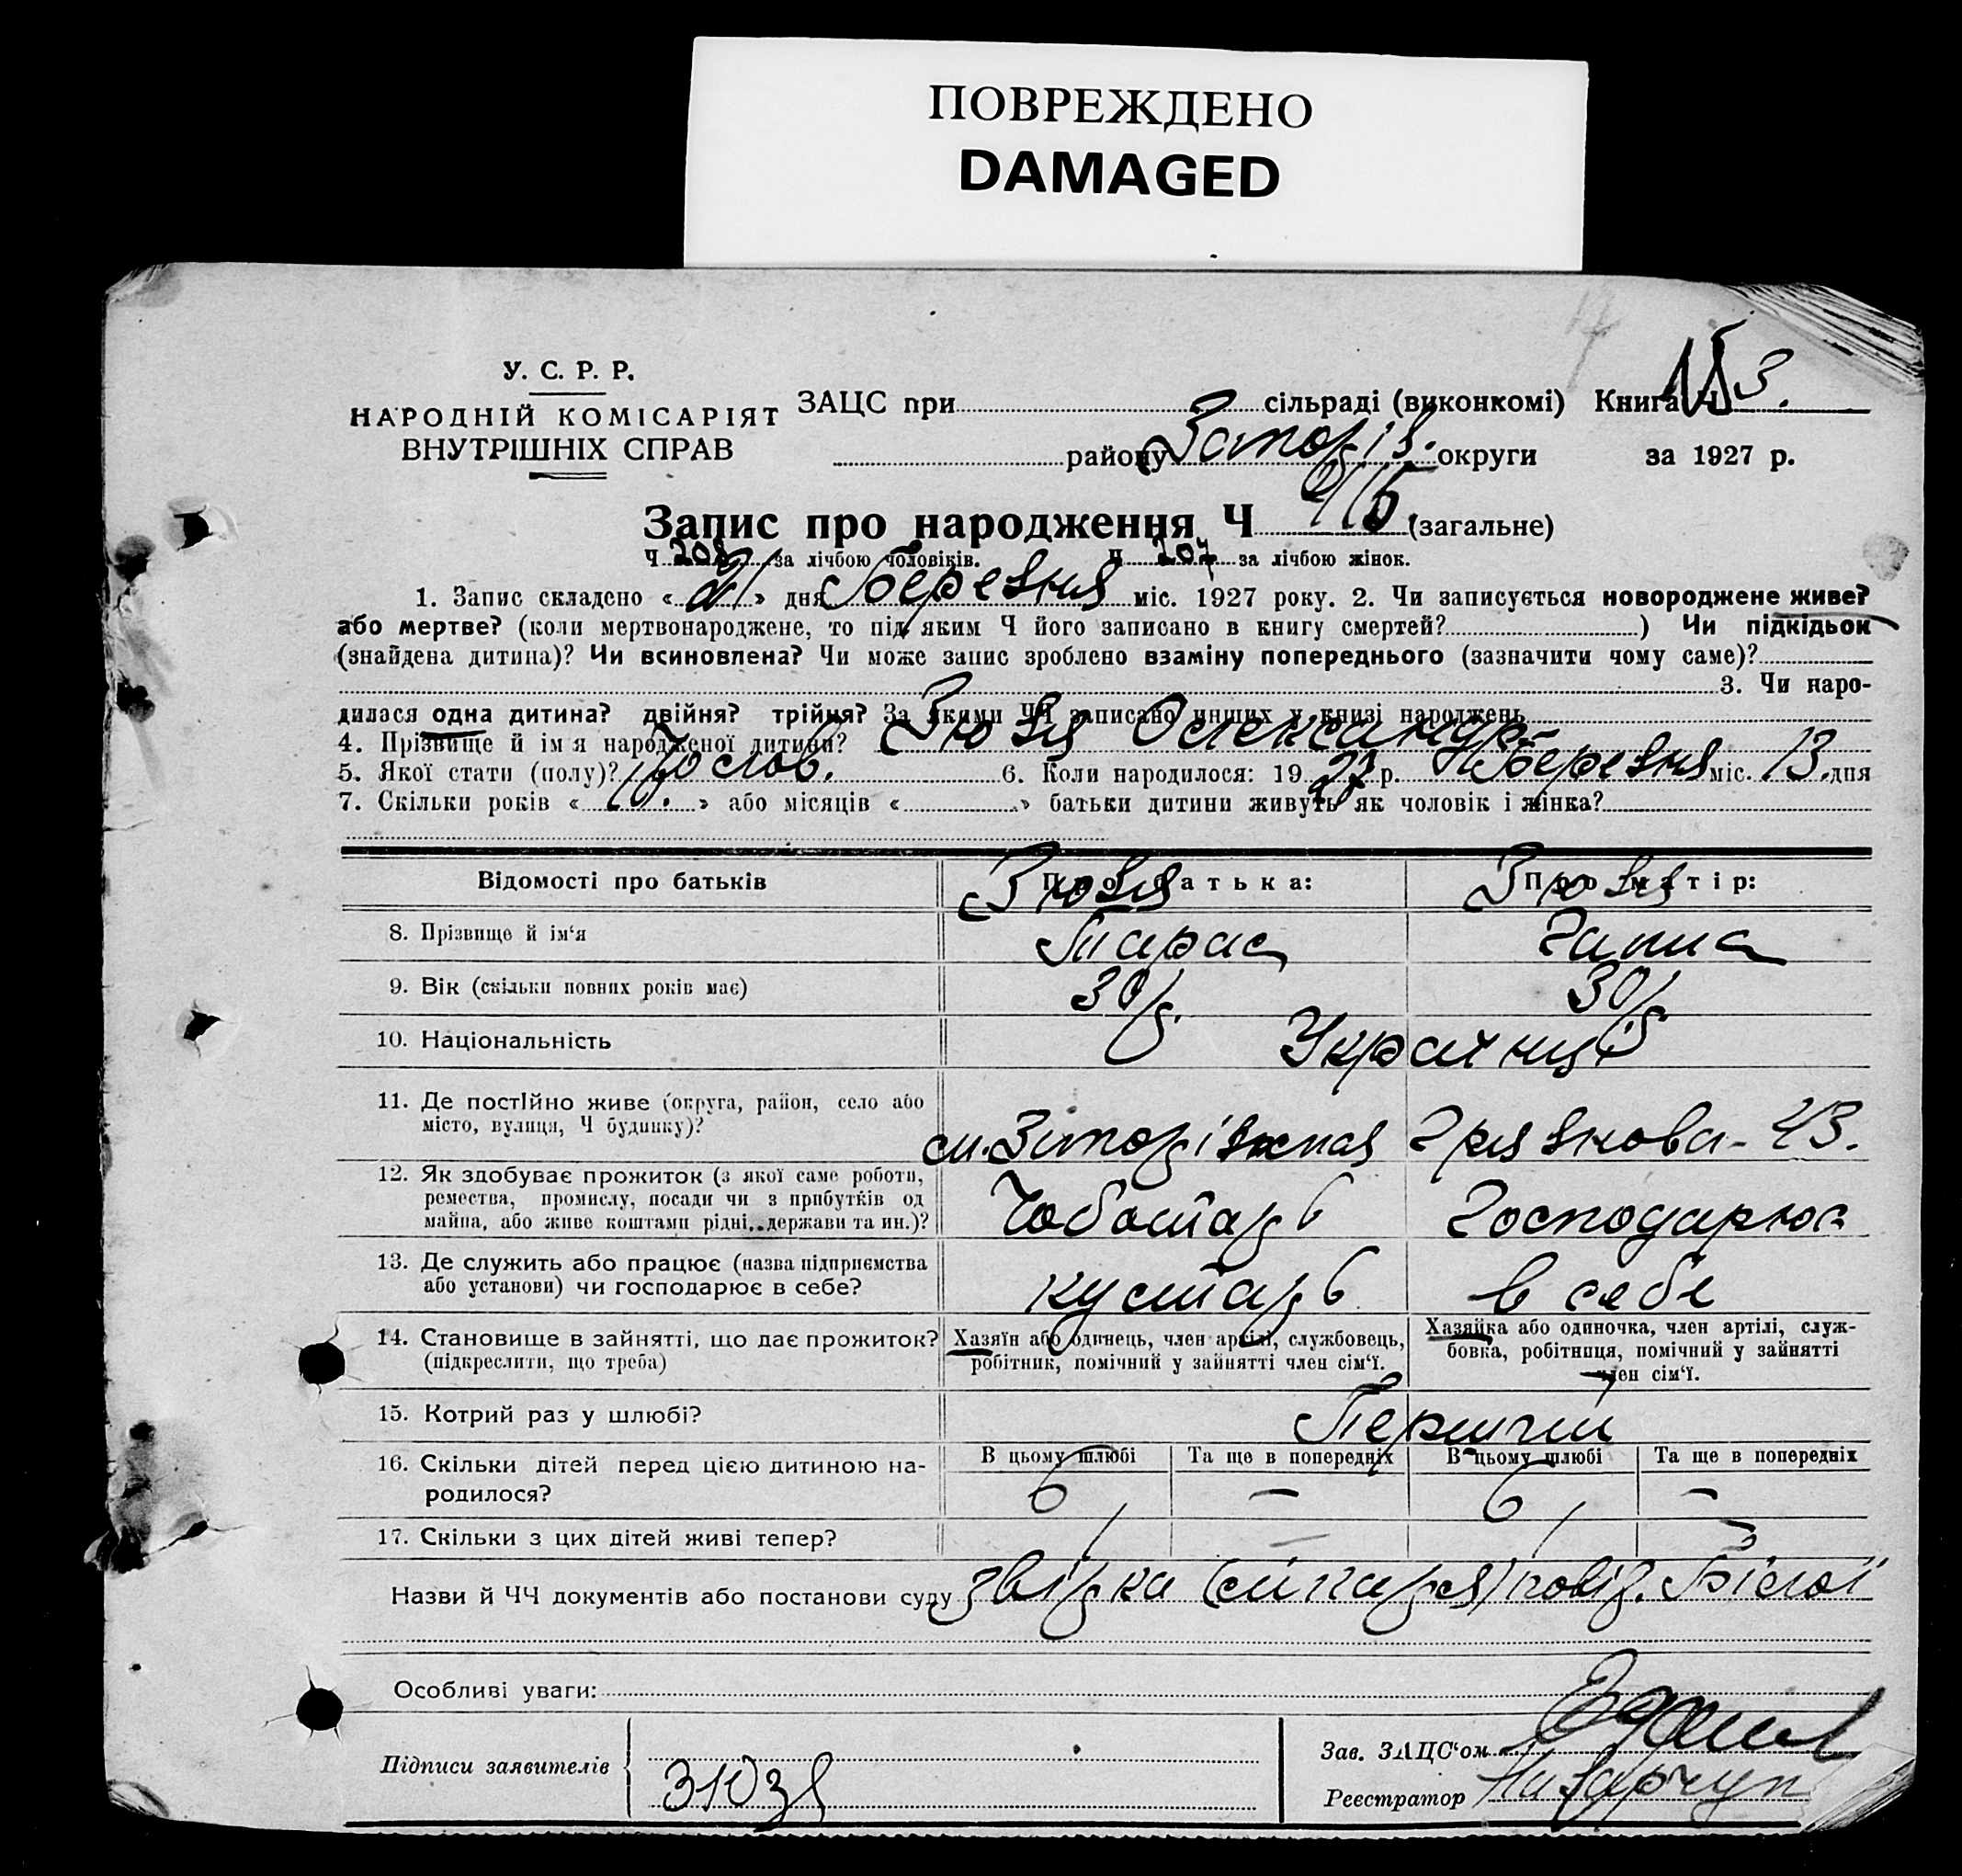 ПОВРЕЖДЕНО
DAMAGED
У. С. Р. Р.
НАРОДНІЙ КОМІСАРІЯТ
ВНУТРІШНІХ СПРАВ
ЗАЦС при сільраді (виконкомі) Книга Ч 3.
району округи за 1927 р.
Запис про народження Ч (загальне)
Ч 208 за лічбою чоловіків. Ч 207 за лічбою жінок.
1. Запис складено « 21 » дня Березня міс. 1927 року. 2. Чи записується новороджене живе?
або мертве? (коли мертвонароджене, то під яким Ч його записано в книгу смертей? ) Чи підкідьок
(знайдена дитина)? Чи всиновлена? Чи може запис зроблено взаміну попереднього (зазначити чому саме)?
3. Чи наро-
дилася одна дитина? двійня? трійня? За якими ЧЧ записано инших у книзі народжень
4. Прізвище й ім'я народженої дитини? Зюзя Олександр
5. Якої стати (полу)? Чолов. 6. Коли народилося: 19 27 р. Березня міс. 13. дня
7. Скільки років « 10. » або місяців « » батьки дитини живуть як чоловік і жінка?
Відомості про батьків Про батька: Зюзя Про матір: Зюзя
8. Прізвище й ім'я Тарас Ганна
9. Вік (скільки повних років має) 30 р. 30 р.
10. Національність Українці
11. Де постійно живе (округа, район, село або
місто, вулиця, Ч будинку)? 43.
12. Як здобуває прожиток (з якої саме роботи, Чоботарь Господарює
ремества, промислу, посади чи з прибутків од
майна, або живе коштами рідні, держави та ин.)?
13. Де служить або працює (назва підприємства кустарь в себе
або установи) чи господарює в себе?
14. Становище в зайнятті, що дає прожиток? Хазяїн або одинець, член артілі, службовець, Хазяйка або одиночка, член артілі, служ-
(підкреслити, що треба) робітник, помічний у зайнятті член сім'ї. бовка, робітниця, помічний у зайнятті
член сім'ї.
15. Котрий раз у шлюбі? Перший
16. Скільки дітей перед цією дитиною на- В цьому шлюбі Та ще в попередніх В цьому шлюбі Та ще в попередніх
родилося? 6 – 6 –
17. Скільки з цих дітей живі тепер? 1 – 1 –
Назви й ЧЧ документів або постанови суду
Особливі уваги:
Підписи заявителів Зюзя
Зав. ЗАЦС'ом
Реєстратор